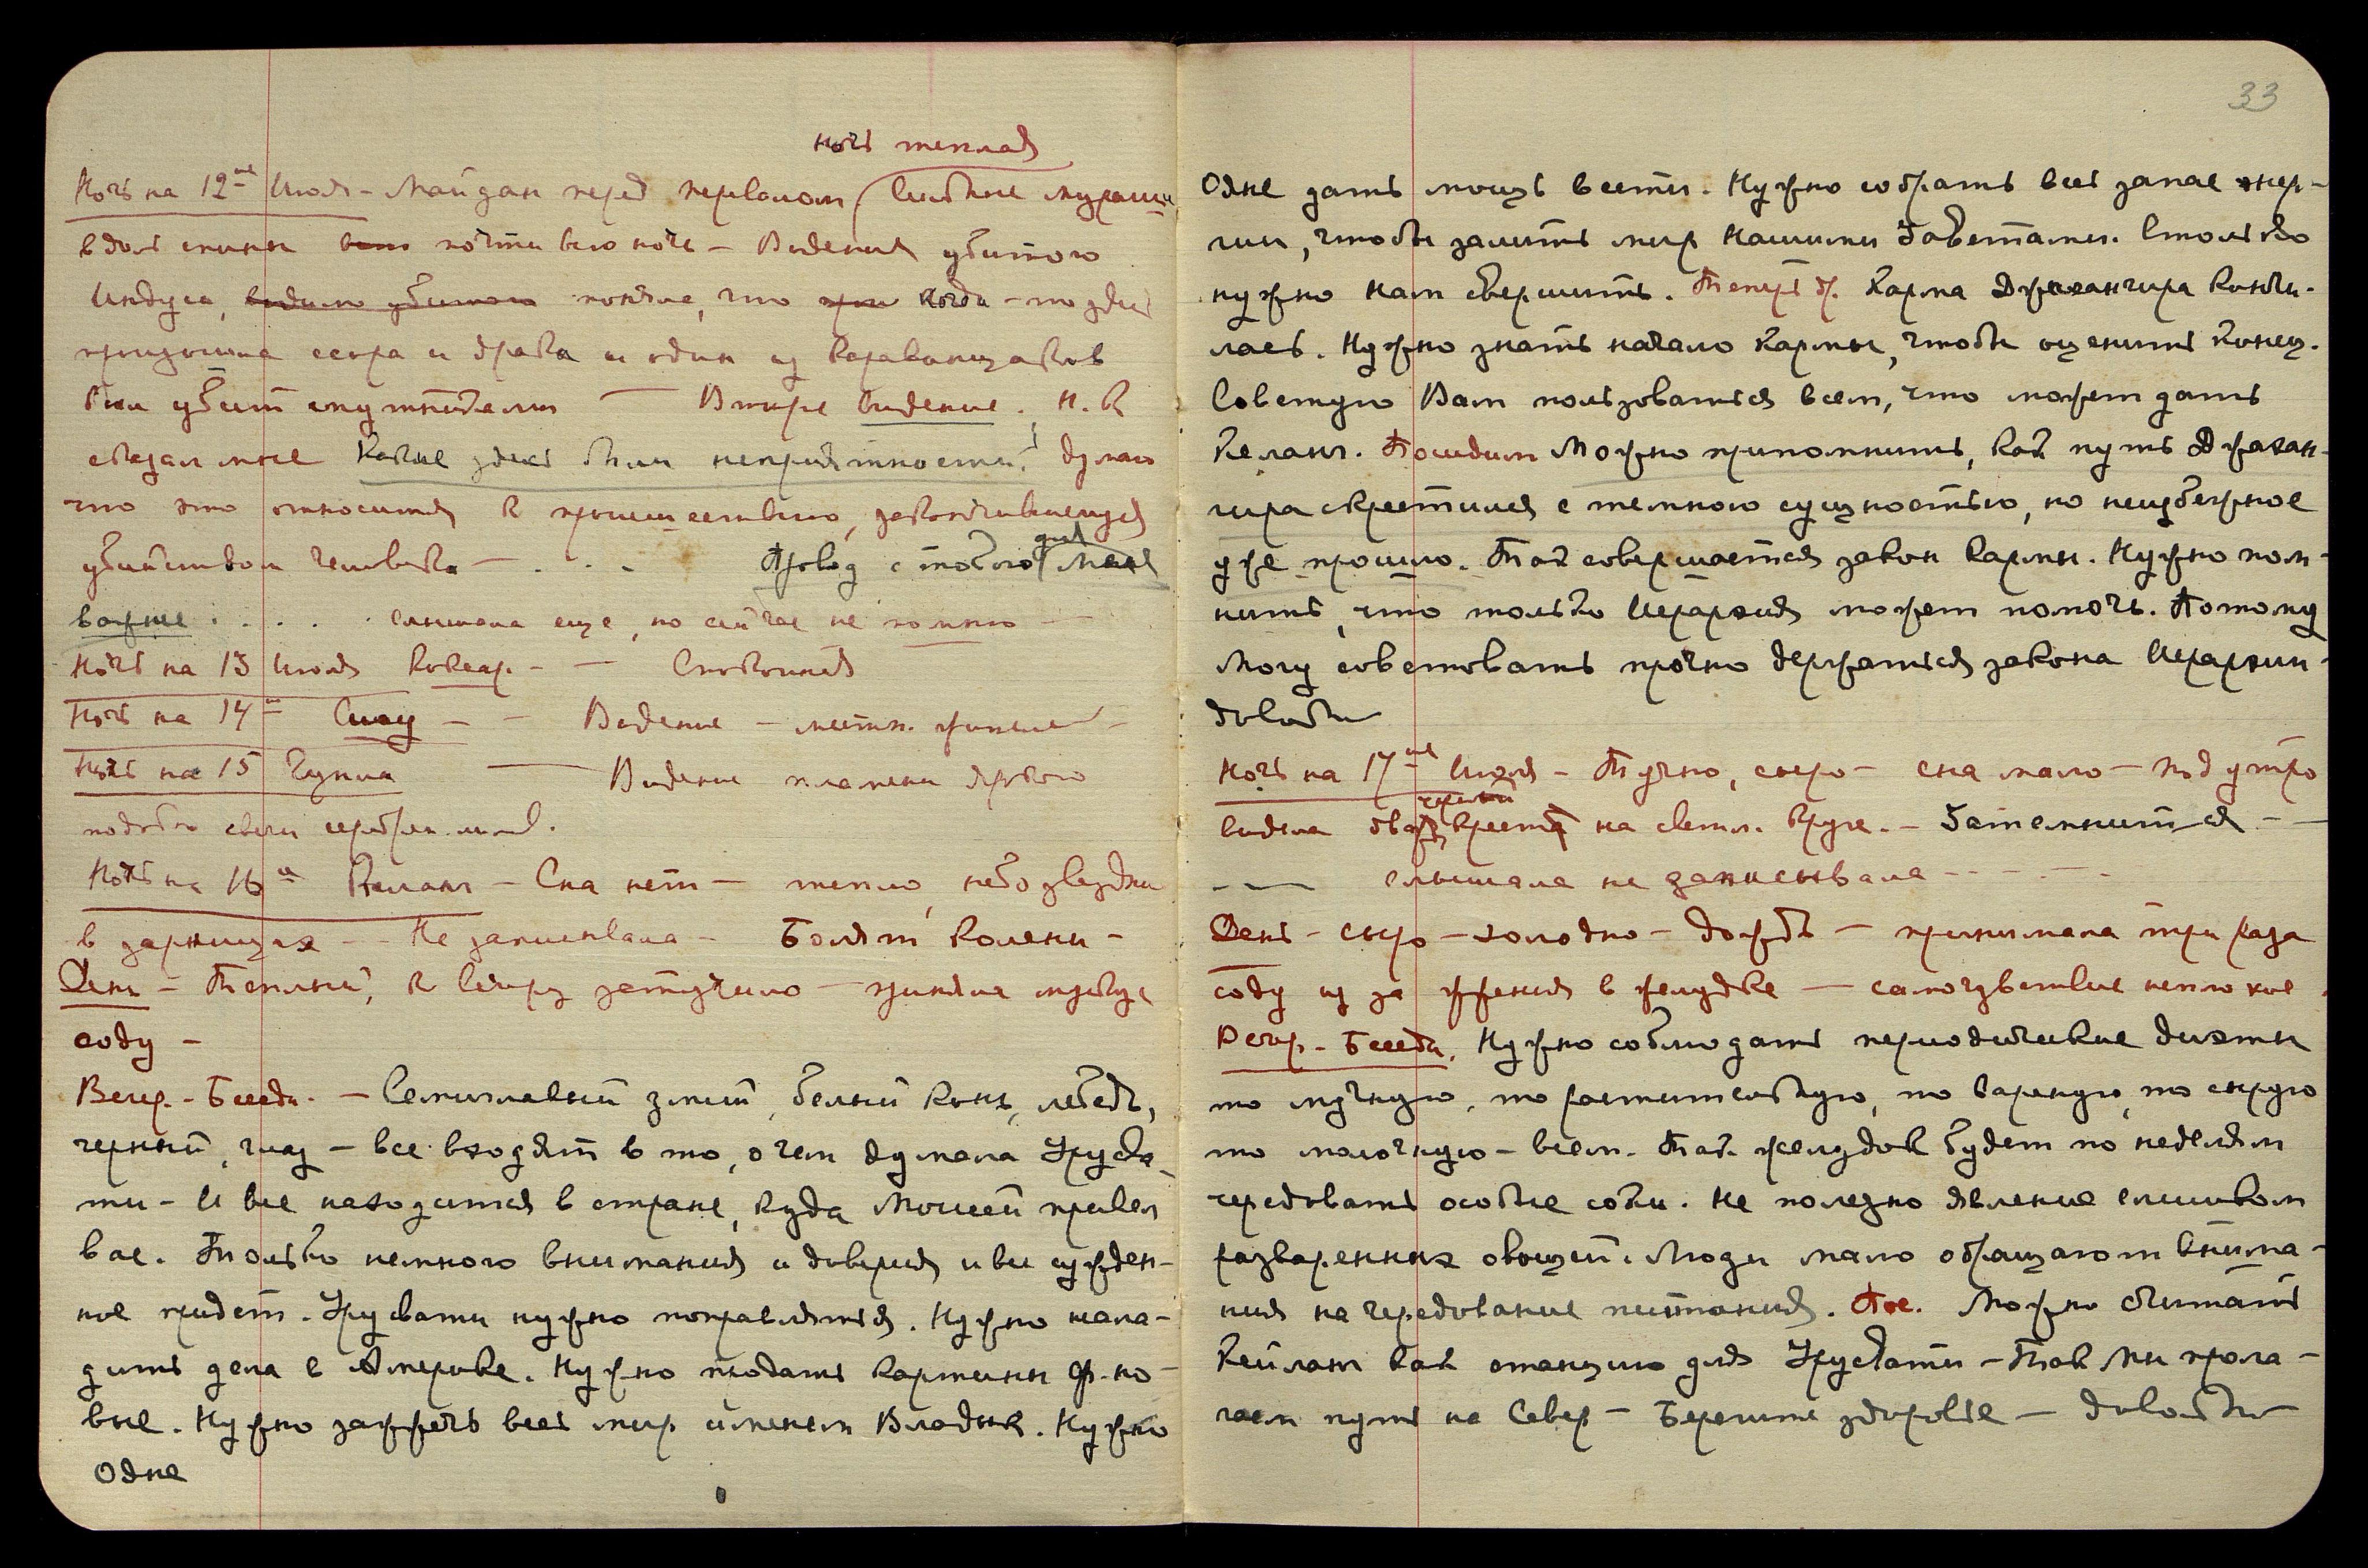 ночь теплая
Ночь на 12ое Июля - Майдан перед перевалом, сильные мураши
вдоль спины почти всю ночь - Видения убитого
Индуса, видимо убитого поняла, что при когда-то здесь
произошла ссора и драка и один из караванщиков
был убит спутниками — Второе видение. Н.К
сказал мне какие здесь были неприятности, думаю
что это относится к происшествию, закончившемуся
убийством человека - . . . Провод с тобою для Меня
важнее . . . . . слышала еще, но сейчас не помню —
Ночь на 13 Июля Коксар - — Спокойная
Ночь на 14ое Сису - - Видение - местн. жители -
Ночь на 15 Гупла — Видение пламени яркого
подобно свечи серебрян.
Ночь на 16ое Келанг - Сна нет - тепло, небо звездное
в зарницах - - Не записывала - Болят колени -
День - Теплый, к вечеру затучило - приняла мускус
соду -
Вечер. - Беседа. - Семиглавый змий, белый конь, лебедь,
черный, глаз - все входят в то, о чем думала Урусва-
ти - И все находится в стране, куда Моисей привел
вас. Только немного внимания и доверия и все сужден-
ное придет. Урусвати нужно поправляться. Нужно нала-
дить дела в Америке. Нужно продать картины Ф. но-
вые. Нужно зажечь весь мир именем Владык. Нужно
Одне
33
Одне дать мощь вести. Нужно собрать весь запас энер-
гии, чтобы залить мир Нашими Заветами. Столько
нужно нам свершить. Теперь др. Карма Джехангира кончи-
лась. Нужно знать начало кармы, чтобы оценить конец.
Советую Вам пользоваться всем, что может дать
Келанг. Посидим Можно припомнить, как путь Джахан-
гира скрестился с темною сущностью, но неизбежное
уже прошло. Так совершается закон кармы. Нужно пом-
нить, что только Иерархия может помочь. Потому
Могу советовать прочно держаться закона Иерархии -
довольно
Ночь на 17ое Июля - Тучно, сыро - сна мало - под утро
видела два черный креста на светл. круге. - Затемнится - —
- — слышала не записывала - - - - -
День - сыро - холодно - дождь - принимала три раза
соду из за жжения в желудке — самочувствие неплохое.
Вечер - Беседа. Нужно соблюдать периодические диэты
то мучную, то растительную, то вареную, то сырую
то молочную - всем. Так желудок будет по неделям
чередовать особые соки. Не полезно явление слишком
разваренных овощей. Люди мало обращают внима-
ния на чередование питания. Пос. Можно считать
Кейланг как станцию для Урусвати - Так Мы прола-
гаем путь на Север - Берегите здоровье - довольно